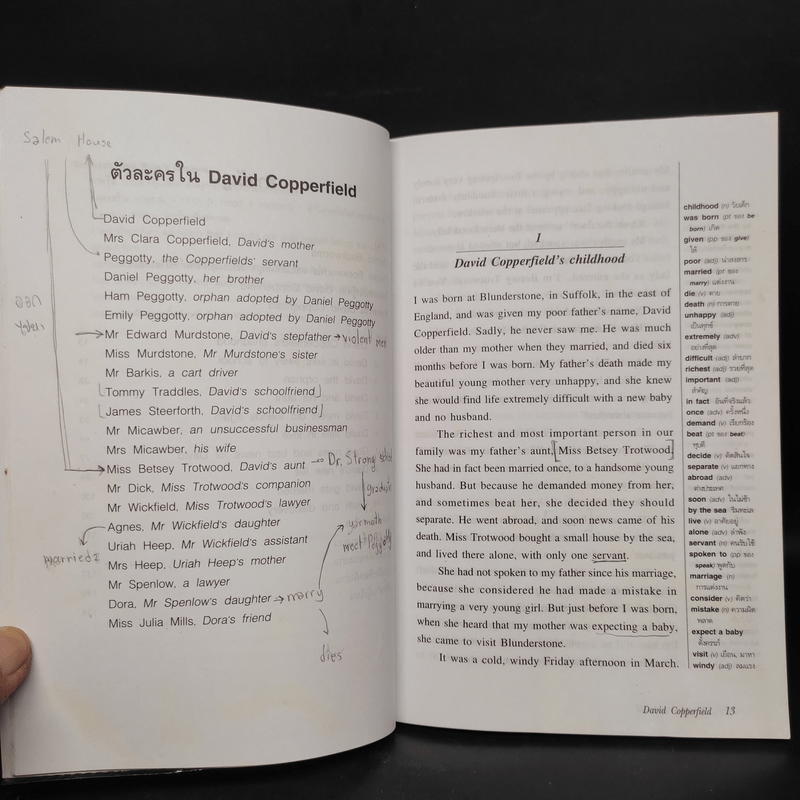 Salem House
ตัวละครใน David Copperfield
David Copperfield
Mrs Clara Copperfield, David's mother
Peggotty, the Copperfields' servant
Daniel Peggotty, her brother
Ham Peggotty, orphan adopted by Daniel Peggotty
Emily Peggotty, orphan adopted by Daniel Peggotty
Mr Edward Murdstone, David's stepfather → violent men
Miss Murdstone, Mr Murdstone's sister
Mr Barkis, a cart driver
Tommy Traddles, David's schoolfriend
James Steerforth, David's schoolfriend
Mr Micawber, an unsuccessful businessman
Mrs Micawber, his wife
Miss Betsey Trotwood, David's aunt → Dr. Strong school
Mr Dick, Miss Trotwood's companion
graduate
Mr Wickfield, Miss Trotwood's lawyer
Agnes, Mr Wickfield's daughter
yarmouth
Uriah Heep, Mr Wickfield's assistant
meet Peggotty
married2
Mrs Heep, Uriah Heep's mother
Mr Spenlow, a lawyer
Dora, Mr Spenlow's daughter → marry
Miss Julia Mills, Dora's friend
dies
1
David Copperfield's childhood
I was born at Blunderstone, in Suffolk, in the east of
England, and was given my poor father's name, David
Copperfield. Sadly, he never saw me. He was much
older than my mother when they married, and died six
months before I was born. My father's death made my
beautiful young mother very unhappy, and she knew
she would find life extremely difficult with a new baby
and no husband.
The richest and most important person in our
family was my father's aunt, [Miss Betsey Trotwood]
She had in fact been married once, to a handsome young
husband. But because he demanded money from her,
and sometimes beat her, she decided they should
separate. He went abroad, and soon news came of his
death. Miss Trotwood bought a small house by the sea,
and lived there alone, with only one servant.
She had not spoken to my father since his marriage,
because she considered he had made a mistake in
marrying a very young girl. But just before I was born,
when she heard that my mother was expecting a baby,
she came to visit Blunderstone.
It was a cold, windy Friday afternoon in March.
childhood (n) วัยเด็ก
was born (pt ของ be
born) เกิด
given (pp ของ give)
ให้
poor (adj) น่าสงสาร
married (pt ของ
marry) แต่งงาน
die (v) ตาย
death (n) การตาย
unhappy (adj)
เป็นทุกข์
extremely (adv)
อย่างที่สุด
difficult (adj) ลำบาก
richest (adj) รวยที่สุด
important (adj)
สำคัญ
in fact อันที่จริงแล้ว
once (adv) ครั้งหนึ่ง
demand (v) เรียกร้อง
beat (pt ของ beat)
ทุบตี
decide (v) ตัดสินใจ
separate (v) แยกทาง
abroad (adv)
ต่างประเทศ
soon (adv) ในไม่ช้า
by the sea ริมทะเล
live (v) อาศัยอยู่
alone (adv) ลำพัง
servant (n) คนรับใช้
spoken to (pp ของ
speak) พูดกับ
marriage (n)
การแต่งงาน
consider (v) คิดว่า
mistake (n) ความผิด
พลาด
expect a baby
ตั้งครรภ์
visit (v) เยือน, มาหา
windy (adj) ลมแรง
David Copperfield 13